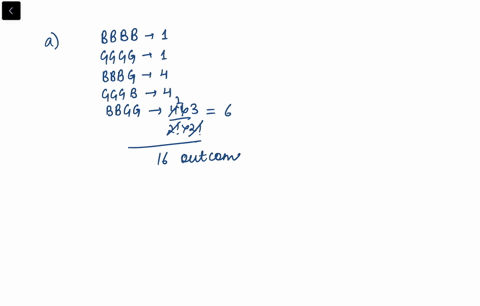 a) BBBB → 1
GGGG → 1
BBBG → 4
GGGB → 4
BBGG → 4×3 / 2!×2! = 6
16 outcom